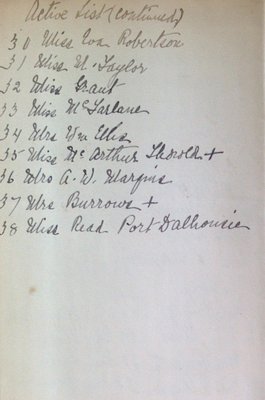 Active List (continued)
30 Miss Eva Robertson
31 Miss M. Taylor
32 Miss Grant
33 Miss McFarlane
34 Mrs Wm Ellis
35 Miss McArthur Thorold +
36 Mrs A. W. Marquis
37 Mrs Burrows +
38 Miss Read Port Dalhousie